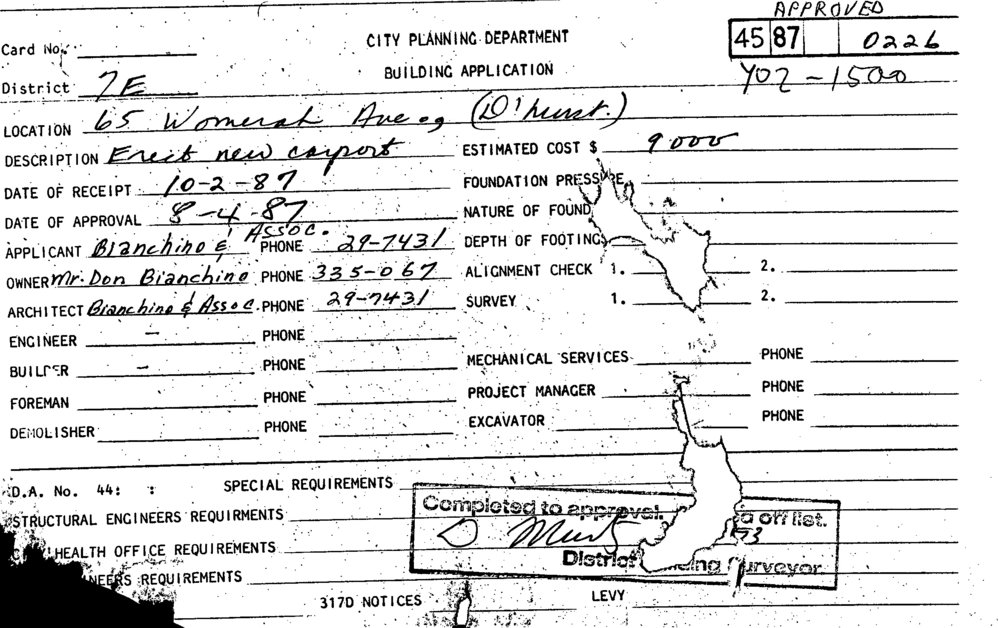 APPROVED
Card No. CITY PLANNING DEPARTMENT 45 87 0226
BUILDING APPLICATION Y02 - 1500
District 7E
LOCATION 65 Womerah Ave (D'hurst.)
DESCRIPTION Erect new carport ESTIMATED COST $ 9000
DATE OF RECEIPT 10-2-87 FOUNDATION PRESSURE
DATE OF APPROVAL 8-4-87 NATURE OF FOUND
APPLICANT Bianchino & Assoc. PHONE 29-7431 DEPTH OF FOOTING
OWNER Mr. Don Bianchino PHONE 335-067 ALIGNMENT CHECK 1. 2.
ARCHITECT Bianchino & Assoc. PHONE 29-7431 SURVEY 1. 2.
ENGINEER - PHONE
BUILDER - PHONE MECHANICAL SERVICES PHONE
FOREMAN PHONE PROJECT MANAGER PHONE
DEMOLISHER PHONE EXCAVATOR PHONE
D.A. No. 44: : SPECIAL REQUIREMENTS
Completed to approval. off list.
STRUCTURAL ENGINEERS REQUIRMENTS
HEALTH OFFICE REQUIREMENTS
District Surveyor
REQUIREMENTS
317D NOTICES LEVY